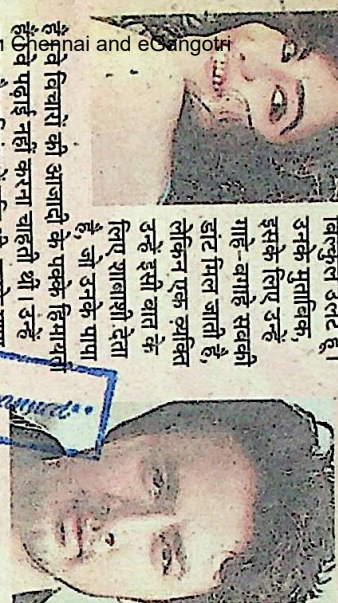 Chennai and eGangotri
बिल्कुल उलट है।
उनके मुताबिक,
इसके लिए उन्हें
गाहे-बगाहे सबकी
डांट मिल जाती है,
लेकिन एक व्यक्ति
उन्हें इसी बात के
लिए शाबाशी देता
है, जो उनके पापा
हैं वे विचारों की आजादी के पक्के हिमायती
हैं। वे पढ़ाई नहीं करना चाहती थीं। उन्हें